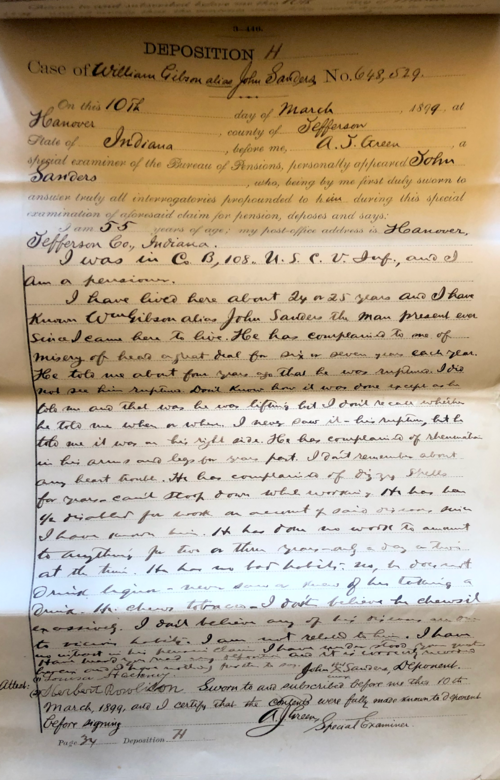 3-446.
DEPOSITION H
Case of William Gibson alias John Sanders, No. 648,529.
On this 10th day of March, 1899, at
Hanover, county of Jefferson
State of Indiana, before me, A. J. Green, a
special examiner of the Bureau of Pensions, personally appeared John
Sanders, who, being by me first duly sworn to
answer truly all interrogatories propounded to him during this special
examination of aforesaid claim for pension, deposes and says:
I am 55 years of age; my post-office address is Hanover,
Jefferson Co, Indiana.
I was in Co B, 108. U.S.C.V. Inf., and I
am a pensioner.
I have lived here about 24 or 25 years and I have
Known Wm Gibson alias John Sanders the man present ever
since I came here to live. He has complained to me of
misery of head a great deal for six or seven years each year.
He told me about four years ago that he was ruptured. I did
not see him ruptured. Don't know how it was done except as he
told me and that was he was lifting but I don't recall whether
he told me when or where. I never saw it - his rupture, but he
told me it was on his right side. He has complained of rheumatism
in his arms and legs for years past. I don't remember about
any heart trouble. He has complained of dizzy spells
for years - can't stoop down while working. He has been
1/2 disabled for work on account of said diseases since
I have known him. He has done no work to amount
to anything for two or three years - only a day or two
at the time. He has no bad habits. No, he does not
drink liquor - never saw or knew of his taking a
drink. He chews tobacco - I don't believe he chews it
excessively. I don't believe any of his diseases are due
to vicious habits. I am not related to him. I have
no interest in his pension claim. I have understood your
Attest: Louisa Hackney John Sanders, Deponent.
Herbert Sworn to and subscribed before me this 10th
March, 1899, and I certify that the contents were fully made known to deponent
before signing
A. J. Green
Special Examiner.
Page 24 Deposition H